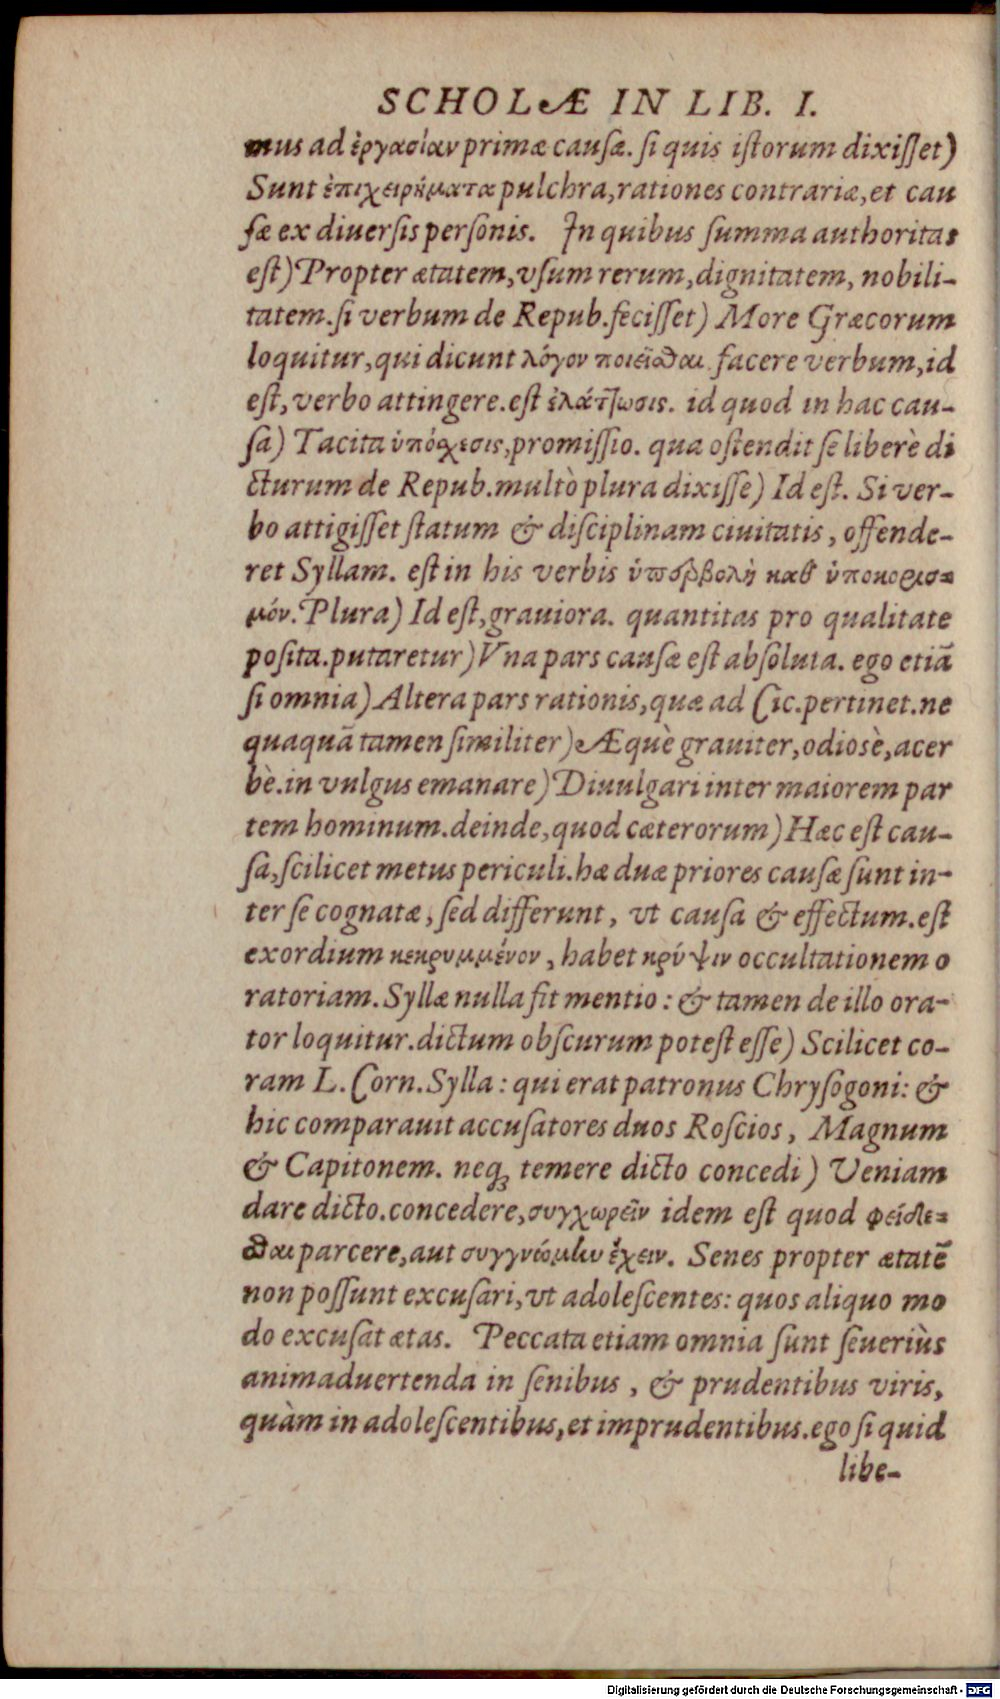 SCHOLÆ IN LIB. I.
mus ad ἐργασίαν primæ causæ. si quis istorum dixisset)
Sunt ἐπιχειρήματα pulchra, rationes contrariæ, et cau
sæ ex diuersis personis. In quibus summa authoritas
est) Propter ætatem, vsum rerum, dignitatem, nobili-
tatem. si verbum de Repub. fecisset) More Græcorum
loquitur, qui dicunt λόγον ποιεῖσθαι facere verbum, id
est, verbo attingere. est ἐλάττωσις. id quod in hac cau-
sa) Tacita ὑπόσχεσις, promissio. qua ostendit se liberè di
cturum de Repub. multò plura dixisse) Id est. Si ver-
bo attigisset statum & disciplinam ciuitatis, offende-
ret Syllam. est in his verbis ὑπερβολὴ καθ᾽ ὑποκορισ-
μόν. Plura) Id est, grauiora. quantitas pro qualitate
posita. putaretur) Vna pars causæ est absoluta. ego etiã
si omnia) Altera pars rationis, quæ ad Cic. pertinet. ne
quaquã tamen similiter) Æquè grauiter, odiosè, acer
bè. in vulgus emanare) Diuulgari inter maiorem par
tem hominum. deinde, quod cæterorum) Hæc est cau-
sa, scilicet metus periculi. hæ duæ priores causæ sunt in-
ter se cognatæ, sed differunt, vt causa & effectum. est
exordium κεκρυμμένον, habet κρύψιν occultationem o
ratoriam. Syllæ nulla fit mentio: & tamen de illo ora-
tor loquitur. dictum obscurum potest esse) Scilicet co-
ram L. Corn. Sylla: qui erat patronus Chrysogoni: &
hic comparauit accusatores duos Roscios, Magnum
& Capitonem. neq; temere dicto concedi) Veniam
dare dicto. concedere, συγχωρεῖν idem est quod φείδε-
σθαι parcere, aut συγγνώμην ἔχειν. Senes propter ætatẽ
non possunt excusari, vt adolescentes: quos aliquo mo
do excusat ætas. Peccata etiam omnia sunt seueriùs
animaduertenda in senibus, & prudentibus viris,
quàm in adolescentibus, et imprudentibus. ego si quid
libe-
Digitalisierung gefördert durch die Deutsche Forschungsgemeinschaft - DFG